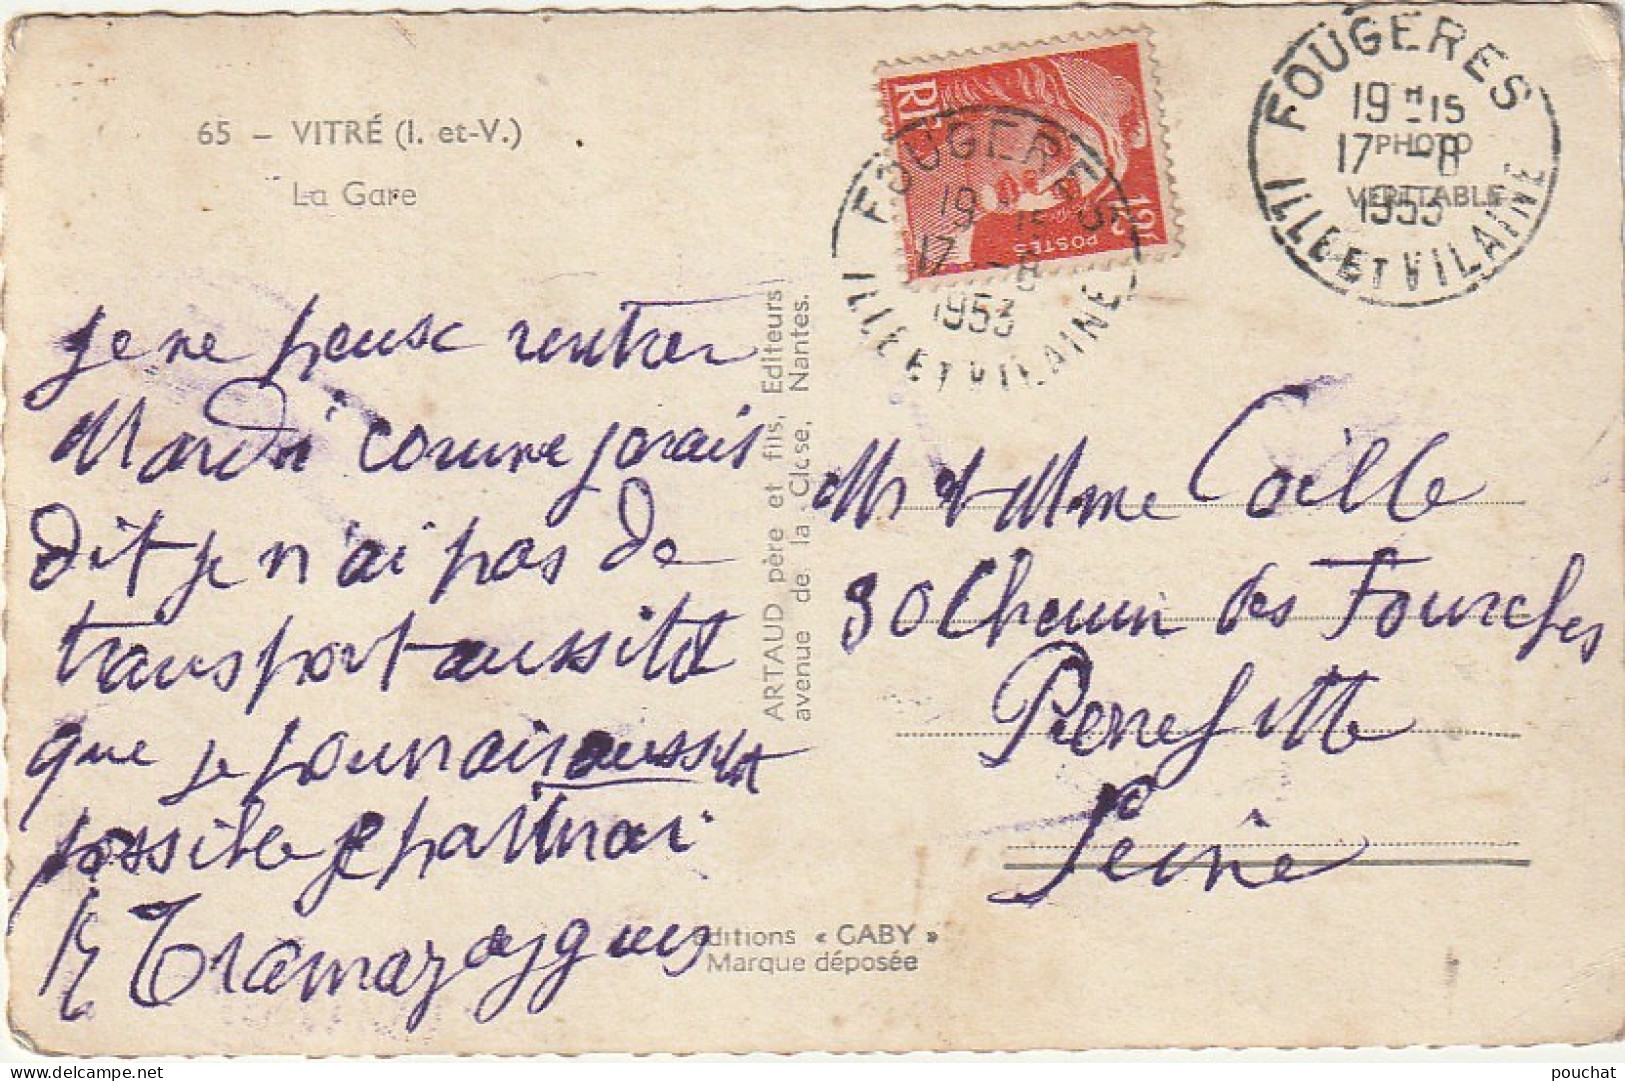 65 - VITRÉ (I. et-V.)
La Gare
je ne peux rentrer
Mardi comme jorais
dit je n'ai pas de
transport aussitot
que je pourrais aussitot
possible je partirai
ARTAUD père et fils, Editeurs
avenue de la Close, Nantes.
Editions « GABY »
Marque déposée
RF
POSTES
12f
FOUGERES
19 H 15
17 -8
1953
ILLE ET VILAINE
FOUGERES
19 H 15
17 -8
1953
ILLE ET VILAINE
PHOTO
VERITABLE
Mr & Mme Coille
30 Chemin des Fourches
Pierrefitte
Seine
pouchat